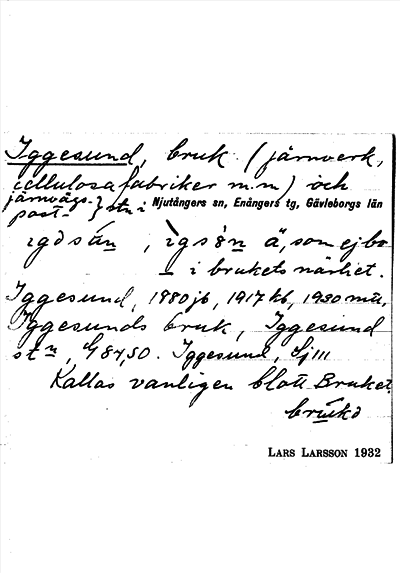 Iggesund, bruk (järnverk,
cellulosafabriker m.m) och
järnvägs- } stn i Njutångers sn, Enångers tg, Gävleborgs län
post-
ä, som ej bo
i brukets närhet.
Iggesund, 1880 jb, 1917 kb, 1930 mtl,
Iggesunds bruk, Iggesund
stn, G 84,50. Iggesund, Ej III
Kallas vanligen blott Bruket
LARS LARSSON 1932